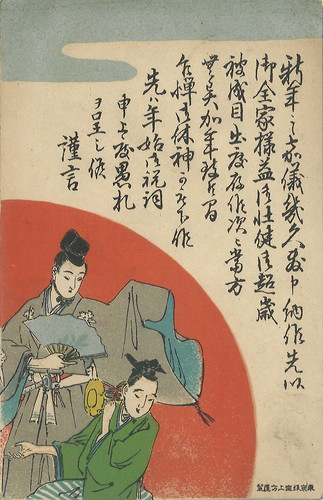 新年之嘉儀幾久敷申納候先以
御全家様益御壮健御超歳
被成目出度存候次ニ當方
無異加年致候間
乍憚御休神可被下候
先ハ年始御祝詞
申上度愚札
謹言
東京銀座上方屋製